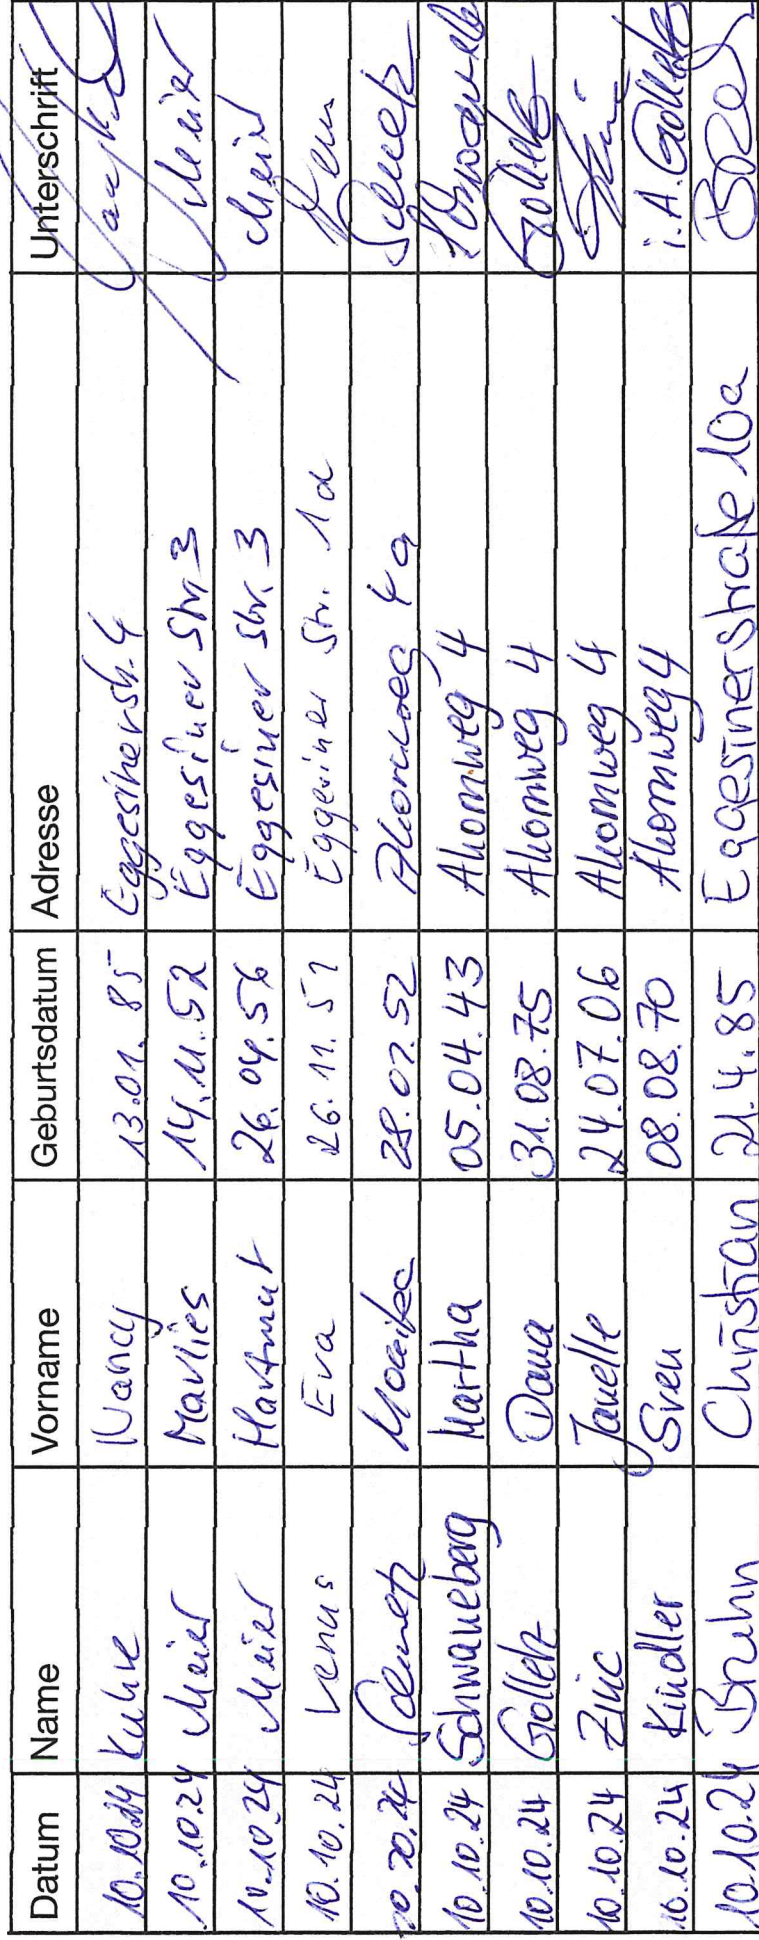 Datum Name Vorname Geburtsdatum Adresse Unterschrift
10.10.24 Kuhve Nancy 13.01.85 Eggesiner Str. 4
10.10.24 Meier Marlies 14.11.52 Eggesiner Str. 3 Meier
10.10.24 Meier Hartmut 26.04.56 Eggesiner Str. 3 Meier
10.10.24 Venus Eva 26.11.51 Eggesiner Str. 1d
Monika 28.07.52 Ahornweg 4a
10.10.24 Schwaneberg Martha 05.04.43 Ahornweg 4
10.10.24 Golletz Dana 31.08.75 Ahornweg 4 Golletz
10.10.24 Zinc Janelle 24.07.06 Ahornweg 4
10.10.24 Kindler Sven 08.08.70 Ahornweg 4 i.A. Golletz
10.10.24 Bruhn Christian 21.4.85 Eggesinerstraße 10a